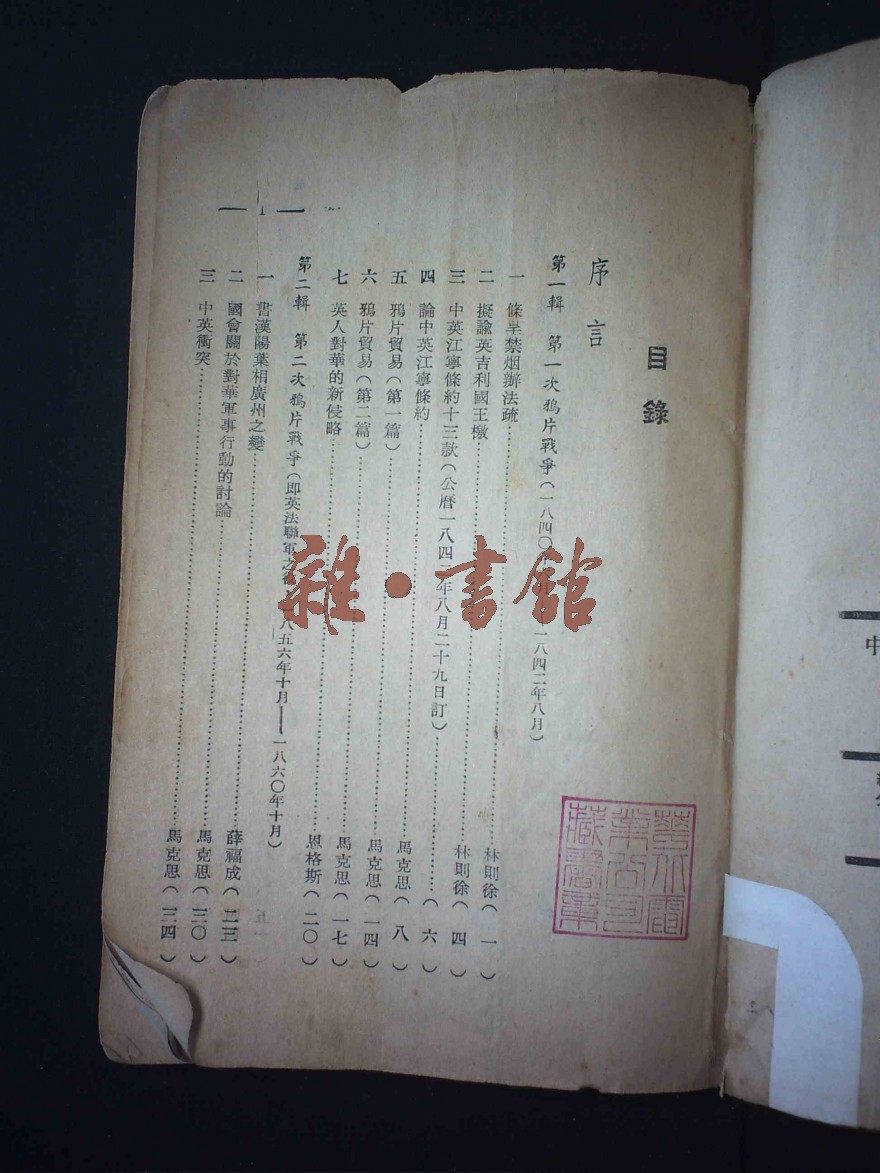 目錄
序言
第一輯 第一次鴉片戰爭（一八四〇 一八四二年八月）
一 條呈禁烟辦法疏……林則徐（一）
二 擬諭英吉利國王檄……林則徐（四）
三 中英江寧條約十三款（公曆一八四二年八月二十九日訂）……（六）
四 論中英江寧條約……馬克思（八）
五 鴉片貿易（第一篇）……馬克思（一四）
六 鴉片貿易（第二篇）……馬克思（一七）
七 英人對華的新侵略……恩格斯（二〇）
第二輯 第二次鴉片戰爭（即英法聯軍之役 一八五六年十月——一八六〇年十月）
一 書漢陽葉相廣州之變……薛福成（二三）
二 國會關於對華軍事行動的討論……馬克思（三〇）
三 中英衝突……馬克思（三四）
雜·書館
華北電
業公司
藏書章
中